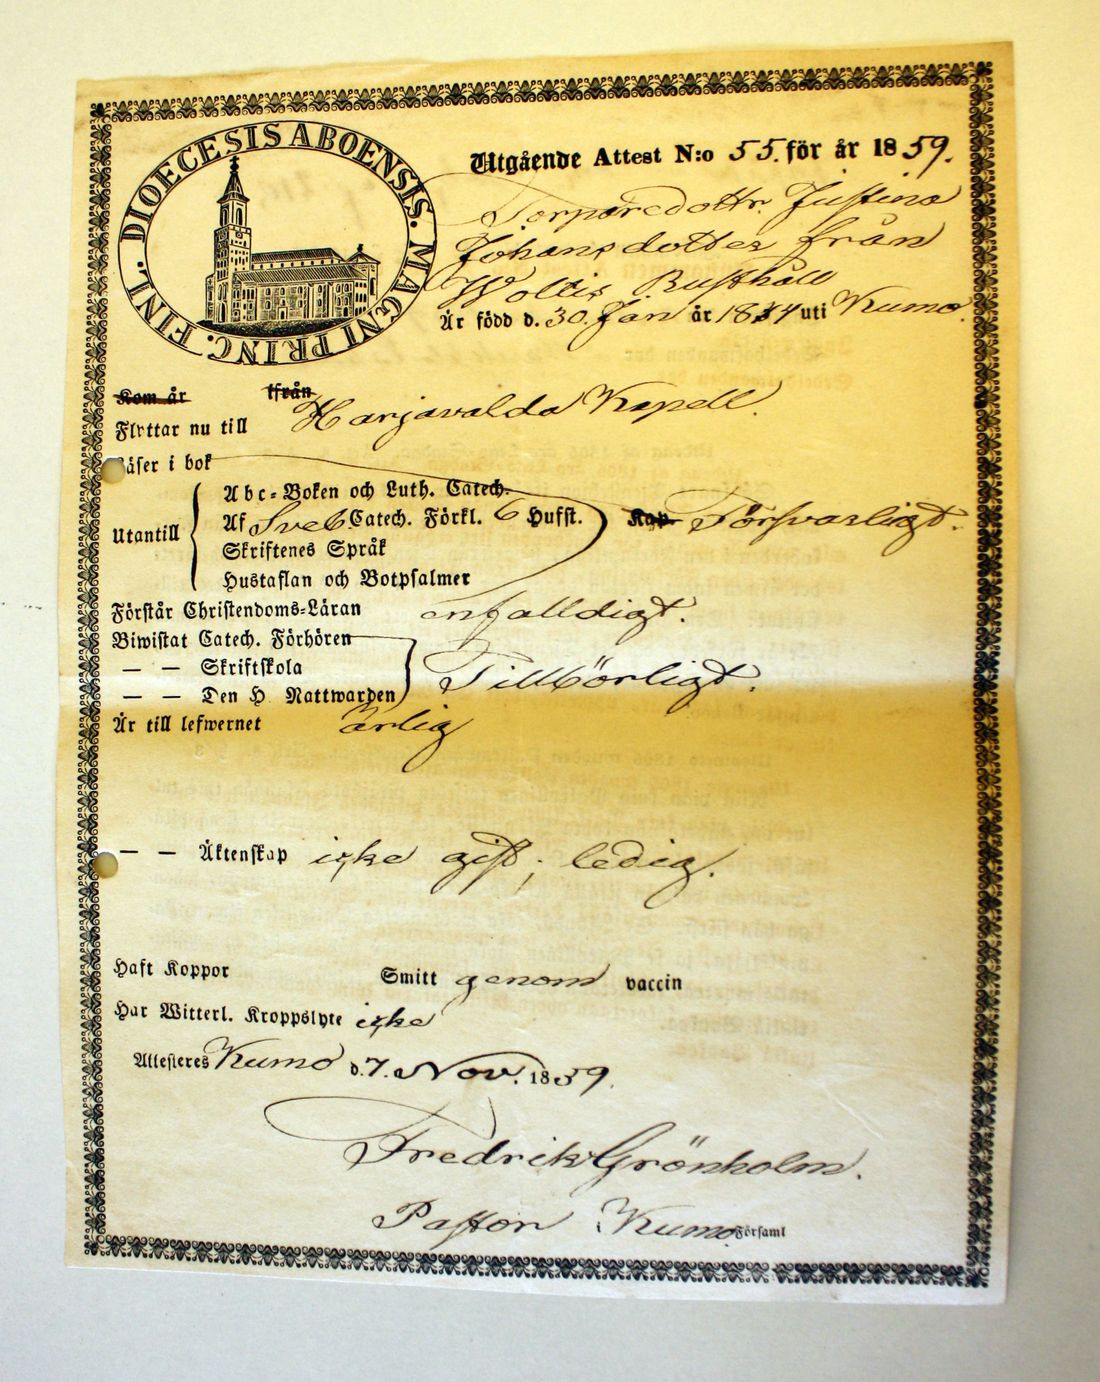 DIOECESIS ABOENSIS. MAGNI PRINC. FINL.
Utgående Attest N:o 55. för år 1859.
Torparedottr. Justina
Johansdotter från
Woltis Rusthåll
Är född d. 30. Jan år 1834 uti Kumo.
Kom år ifrån
Flyttar nu till Harjavalda Kapell.
Läser i bok
Utantill
Abc-Boken och Luth. Catech.
Af Sveb. Catech. Förkl. 6 Hufst. Kap. Försvarligt.
Skriftenes Språk
Hustaflan och Botpsalmer
Förstår Christendoms-Läran enfalldigt.
Biwistat Catech. Förhören
— — Skriftskola Tillbörligt.
— — Den H. Nattwarden
Är till lefwernet ärlig
— — Äktenskap icke gift; ledig.
Haft Koppor Smitt genom vaccin
Har Witterl. Kroppslyte icke
Attesteres Kumo d. 7. Nov. 1859.
Fredrik Grönholm.
Pastor Kumo Församl